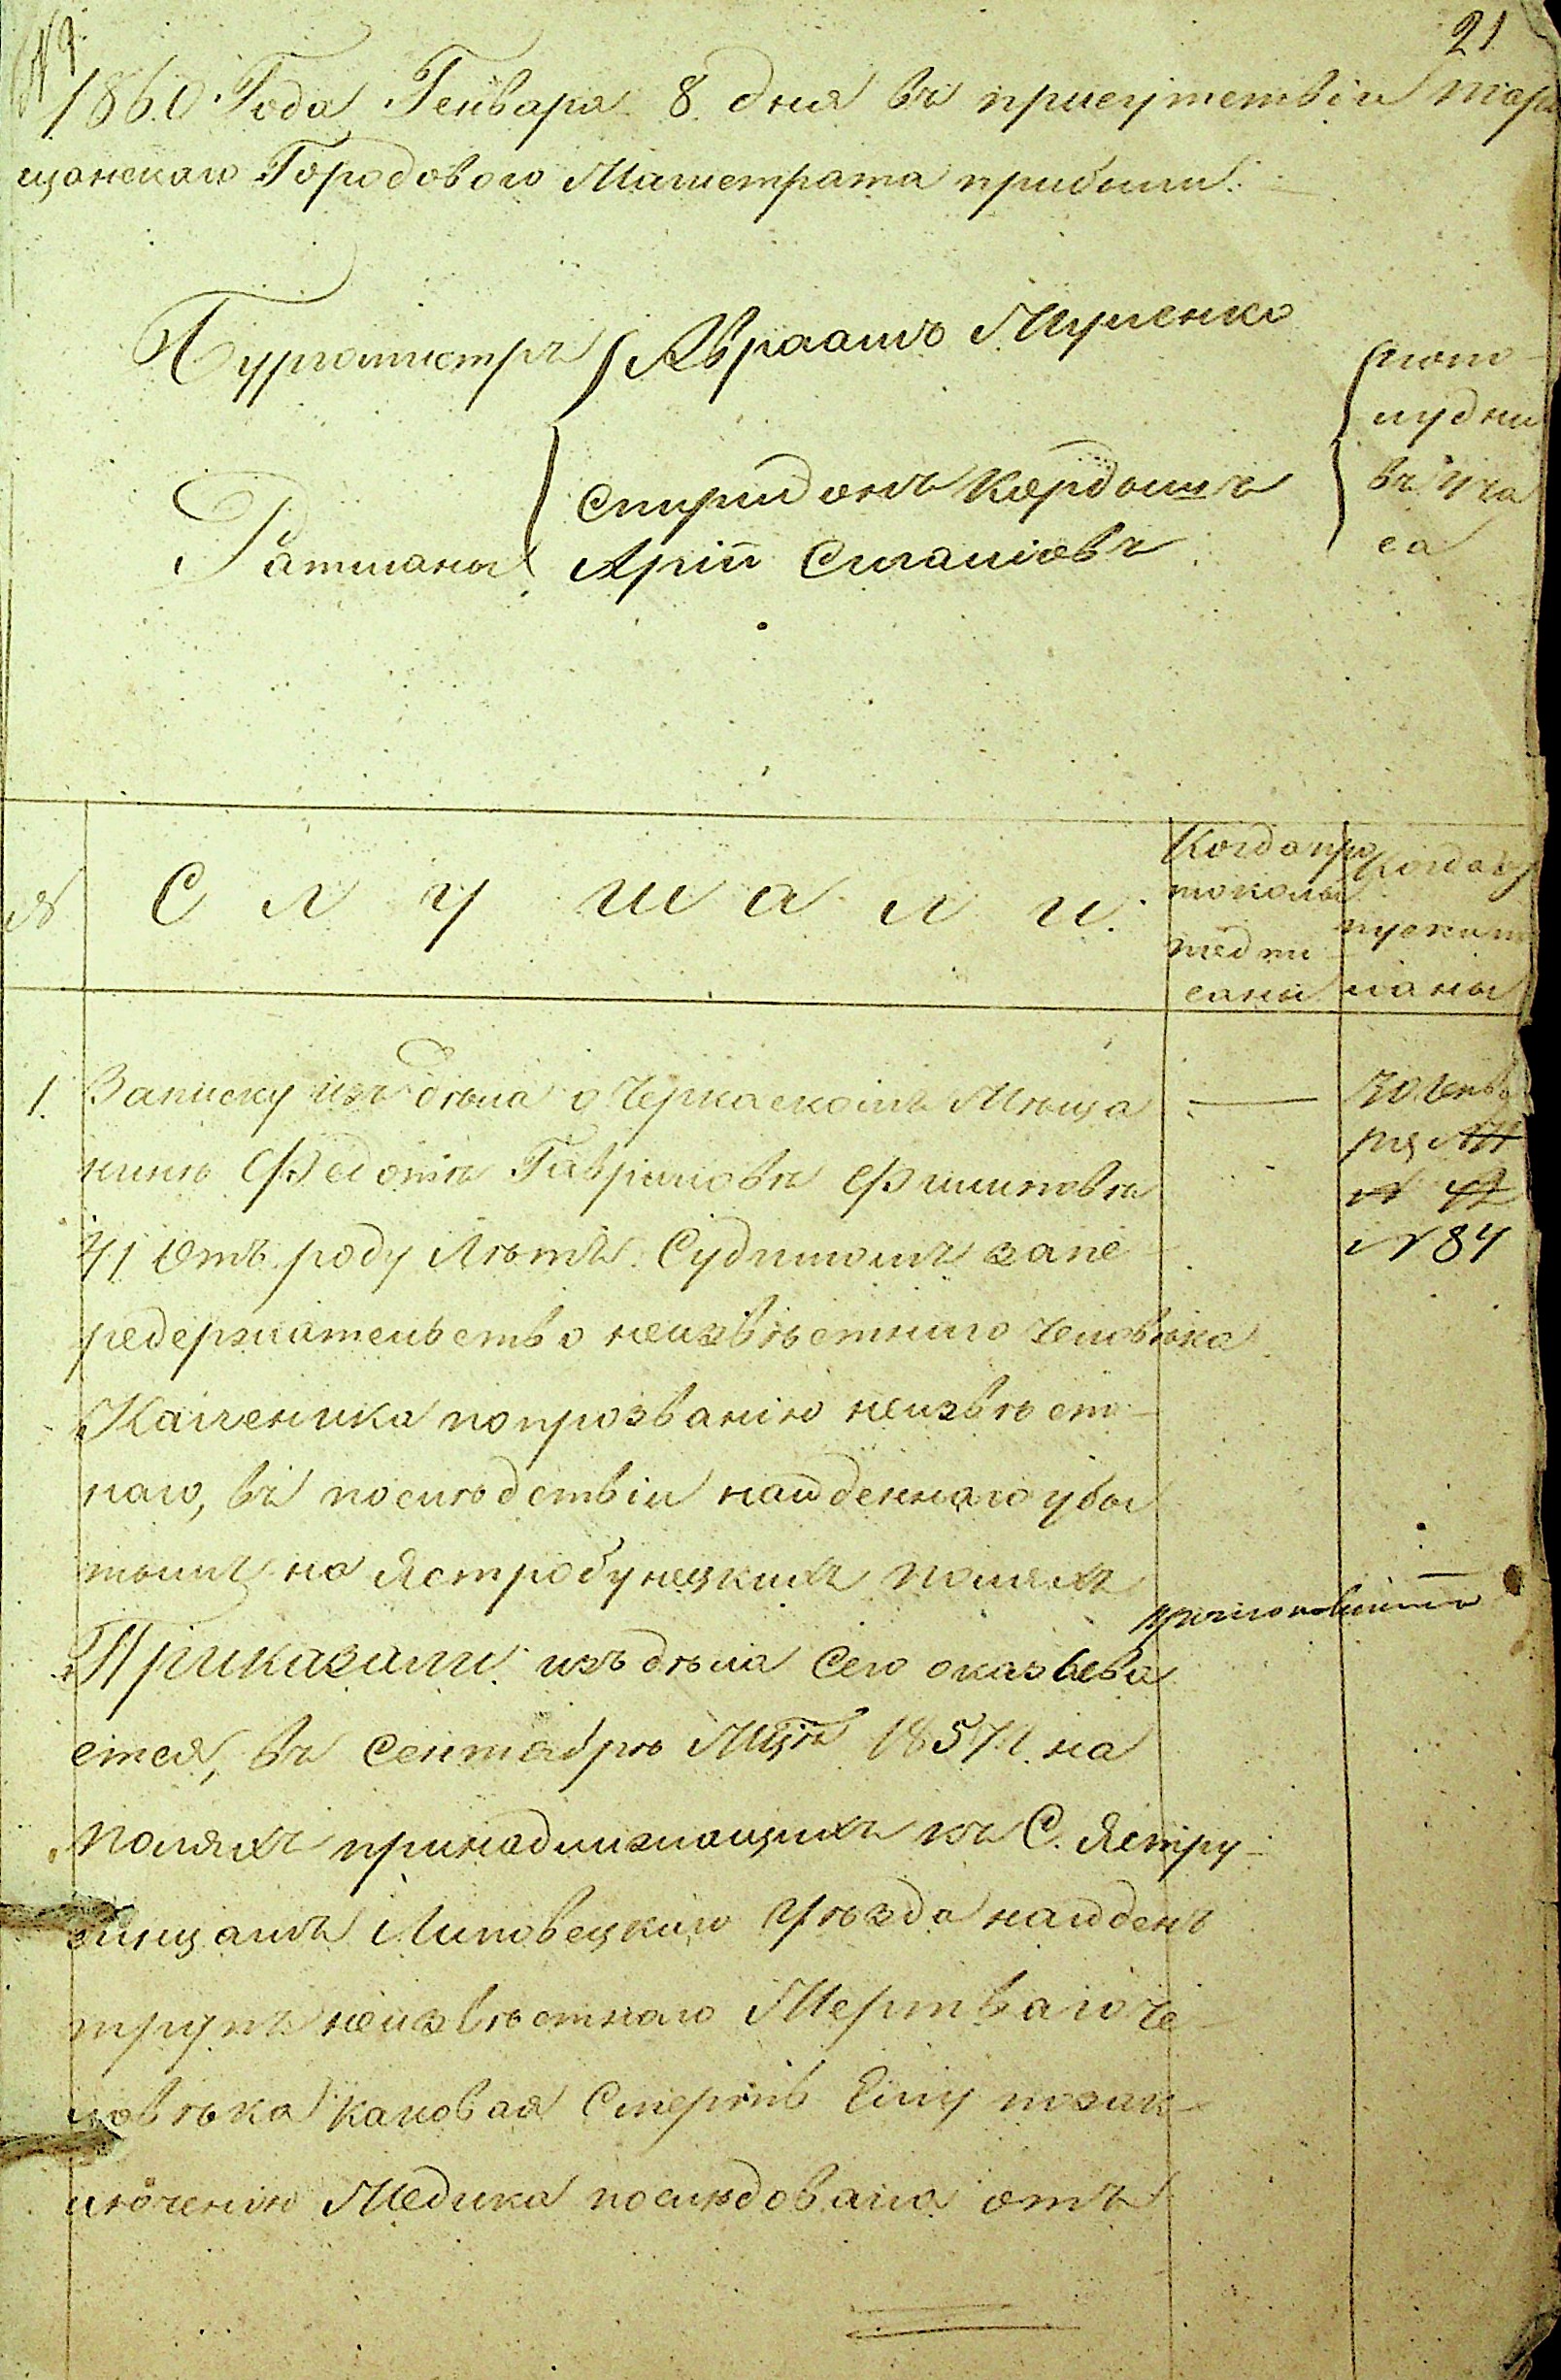 21
1860 Года Генваря 8 дня въ присутствіи Тара
щанскаго Городового Магистрата прибыли:
Бургомистръ Авраамъ
Ратманы Спиридонъ Кордышъ
Арій
пополу
дни
въ 4 ча
са
№ Слушали.
Когда про
токолы
подпи
саны
Когда
испол
нены
1. Записку изъ дѣла о Черкаскомъ Мѣща
нинѣ Федотѣ Гавриловѣ Филиповѣ
41 отъ роду лѣтъ. Судимомъ за пе
редержательство неизвѣстного человѣка
Каменика по прозванію неизвѣст-
наго, въ послѣдствіи найденнаго уби
тымъ на Ястробунецкихъ поляхъ
Приказали изъ дѣла сего оказыва
ется, въ Сентябрѣ Мцѣ 1857 г. на
поляхъ принадлижащихъ къ С. Ястру-
бинцамъ Липовецкаго Уѣзда найденъ
трупъ неизвѣстнаго Мертваго че-
ловѣка каковая Смерть Ему по зак-
люченію Медика послѣдовала отъ
30 Генва
ря
№ 84